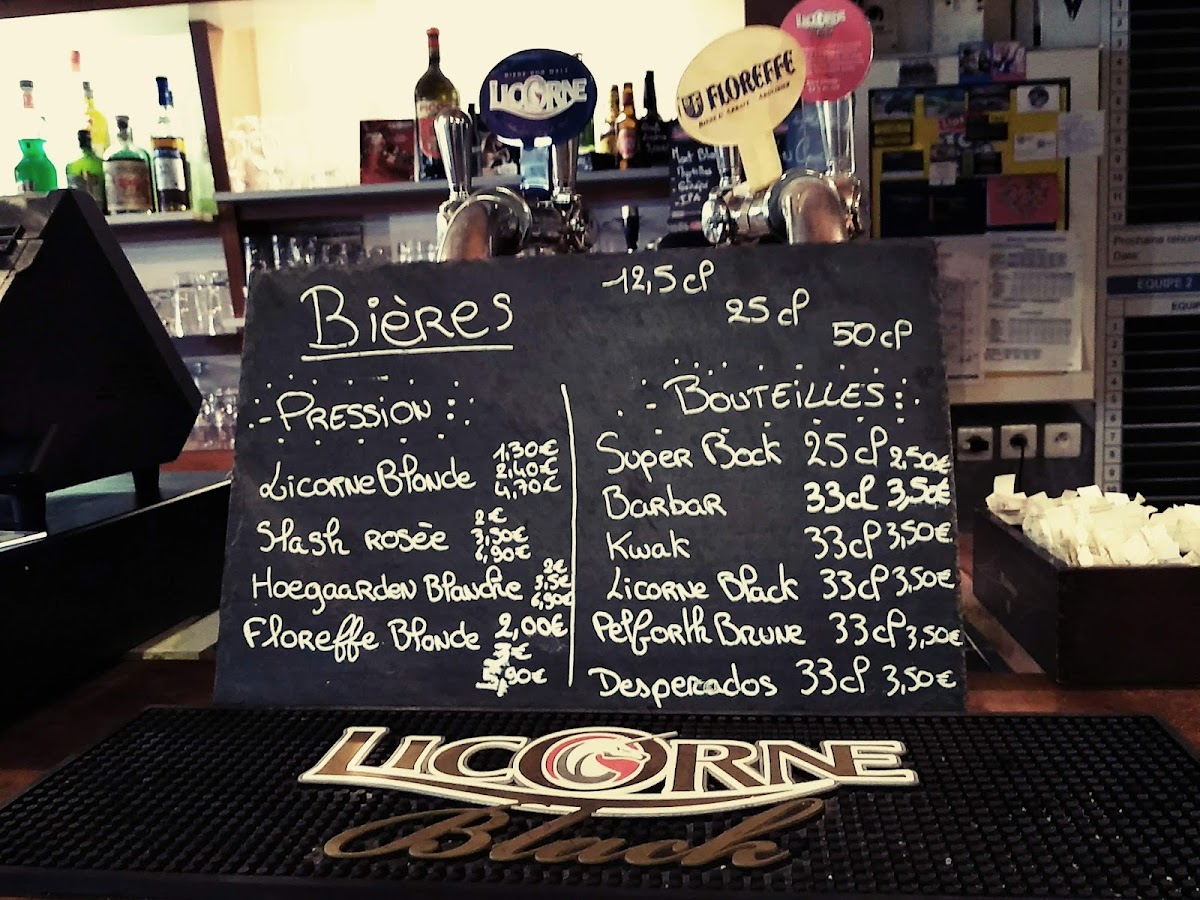 LICORNE
LICORNE
FLOREFFE
Prochaine rencontre
Date:
EQUIPE 2
Bières
12,5 cl
25 cl
50 cl
PRESSION :
Licorne Blonde 1,30€
2,40€
4,70€
Slash rosée 2€
3,50€
6,90€
Hoegaarden Blanche 2€
3,5€
6,90€
Floreffe Blonde 2,00€
3€
5,90€
BOUTEILLES :
Super Bock 25 cl 2,50€
Barbar 33cl 3,50€
Kwak 33cl 3,50€
Licorne Black 33cl 3,50€
Pelforth Brune 33cl 3,50€
Desperados 33cl 3,50€
LICORNE
Black